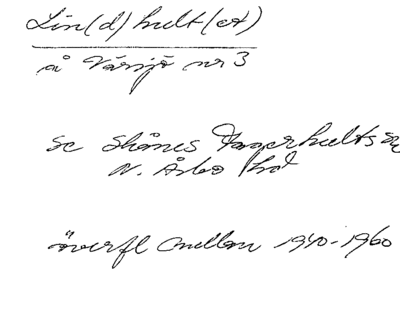 Lin(d)hult(et)
å Värsjö nr 3
se Skånes Fagerhults sn
N. Åsbo hd
överfl mellan 1940-1960